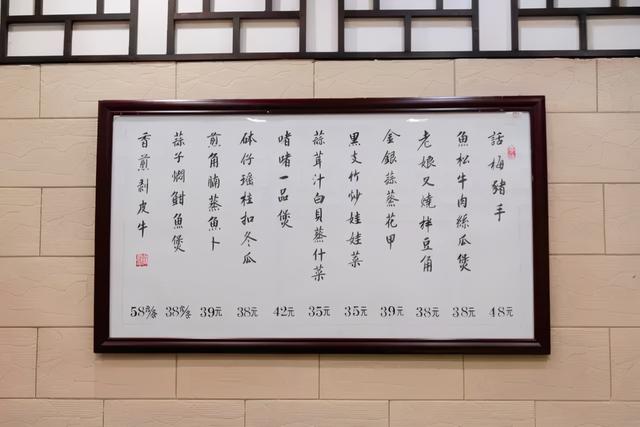 話梅豬手
48元
魚松牛肉絲瓜煲
38元
老娘叉燒拌豆角
38元
金銀蒜蒸花甲
39元
黑支竹炒娃娃菜
35元
蒜茸汁白貝蒸什菜
35元
啫啫一品煲
42元
砵仔瑶柱扣冬瓜
38元
煎角腩蒸魚卜
39元
蒜子焖魽魚煲
38元/条
香煎剥皮牛
58元/条